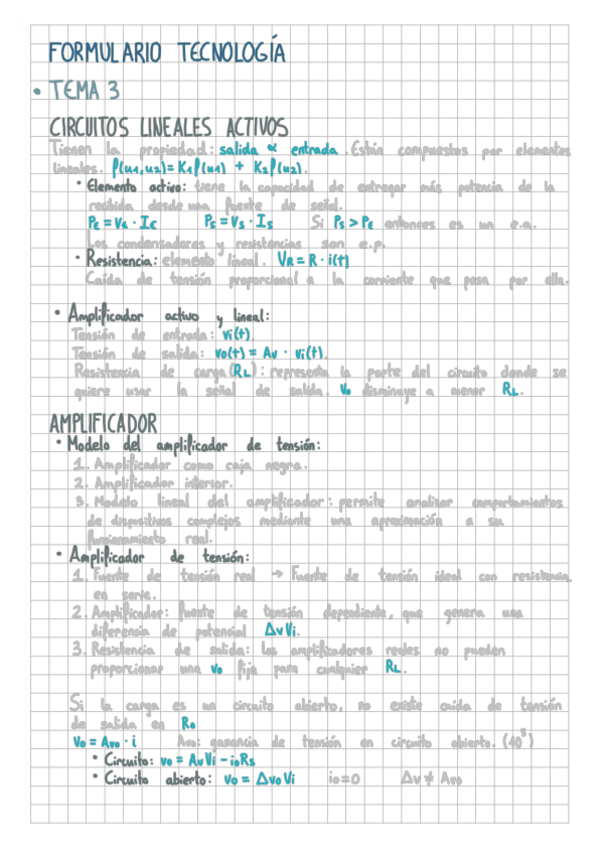 FORMULARIO TECNOLOGÍA
• TEMA 3
CIRCUITOS LINEALES ACTIVOS
Tienen la propiedad: salida ∝ entrada. Están compuestos por elementos
lineales. f(u1,u2)= K1f(u1) + K2f(u2).
• Elemento activo: tiene la capacidad de entregar más potencia de la
recibida desde una fuente de señal.
PE = VE · IC PS = VS · IS Si PS > PE entonces es un e.a.
Los condensadores y resistencias son e.p.
• Resistencia: elemento lineal. VR = R · i(t)
Caída de tensión proporcional a la corriente que pasa por ella.
• Amplificador activo y lineal:
Tensión de entrada: vi(t)
Tensión de salida: vo(t) = Av · vi(t).
Resistencia de carga (RL): representa la parte del circuito donde se
quiere usar la señal de salida. Vo disminuye a menor RL.
AMPLIFICADOR
• Modelo del amplificador de tensión:
1. Amplificador como caja negra.
2. Amplificador inferior.
3. Modelo lineal del amplificador: permite analizar comportamientos
de dispositivos complejos mediante una aproximación a su
funcionamiento real.
• Amplificador de tensión:
1. Fuente de tensión real → Fuente de tensión ideal con resistencia
en serie.
2. Amplificador: fuente de tensión dependiente, que genera una
diferencia de potencial ΔvVi.
3. Resistencia de salida: los amplificadores reales no pueden
proporcionar una vo fija para cualquier RL.
Si la carga es un circuito abierto, no existe caída de tensión
de salida en Ro
Vo = Avo · i Avo: ganancia de tensión en circuito abierto. (10⁵)
• Circuito: vo = AvVi - ioRs
• Circuito abierto: vo = ΔvoVi io=0 Δv ≠ Avo